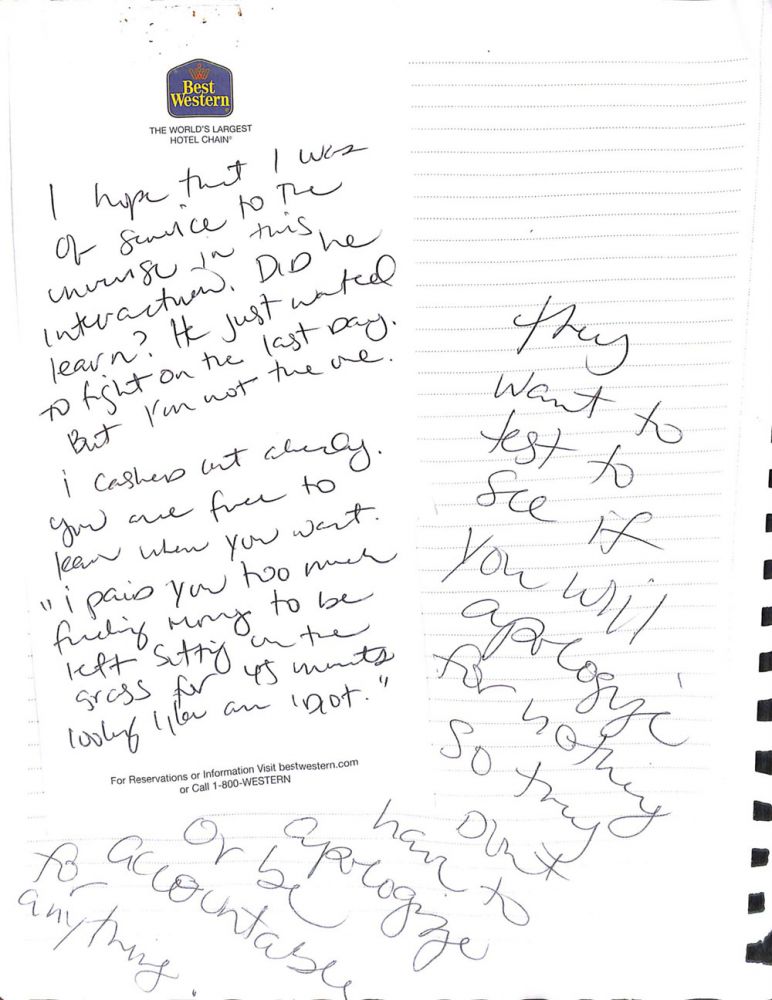 Best
Western
THE WORLD'S LARGEST
HOTEL CHAIN®
I hope that I was
of service to the
universe in this
interaction. DID he
learn? He just wanted
to fight on the last Day.
But I'm not the one.
i casheD out already.
you are free to
leave when you want.
"i paiD you too much
fucking money to be
left sitting on the
grass for 45 minutes
looking like an iDiot."
For Reservations or Information Visit bestwestern.com
or Call 1-800-WESTERN
they
want to
test to
see if
you will
apologize
for nothing
so they
Don't
have to
apologize
or be
accountable
for
anything.